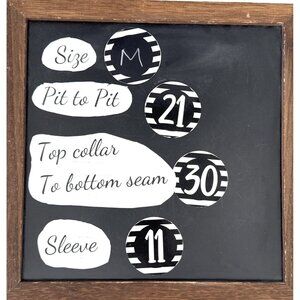 Size M
Pit to Pit 21
Top collar
To bottom seam 30
Sleeve 11